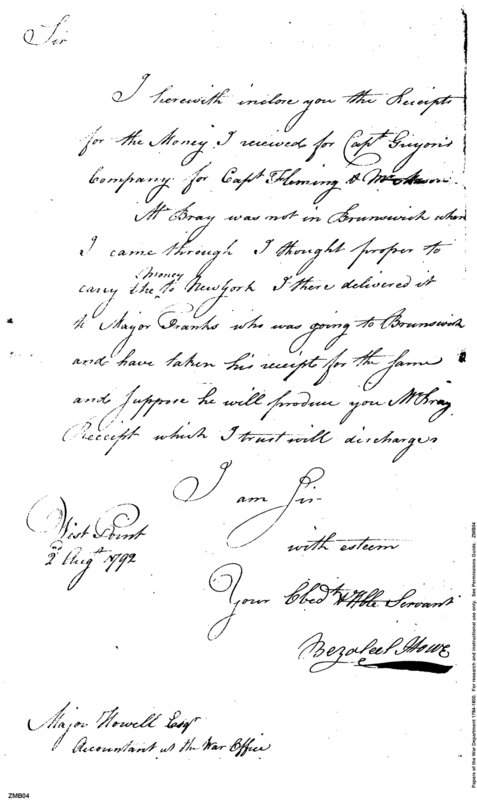 Sir
I herewith inclose you the Receipts
for the Money I received for Capt Guyon's
Company for Capt Fleming &
Mr Bray was not in Brunswick when
I came through I thought proper to
carry the Money to New York I there delivered it
to Major Franks who was going to Brunswick
and have taken his receipt for the same
and suppose he will produce you Mr Bray
Receipt which I trust will discharge
I am Sir
with esteem
Your Obedt & Hble Servant
Bezaleel Howe
West Point
2nd Augt 1792
Major Howell Esqr
Accountant at the War Office
ZMB04
Papers of the War Department 1784-1800. For research and instructional use only. See Permissions Guide. ZMB04